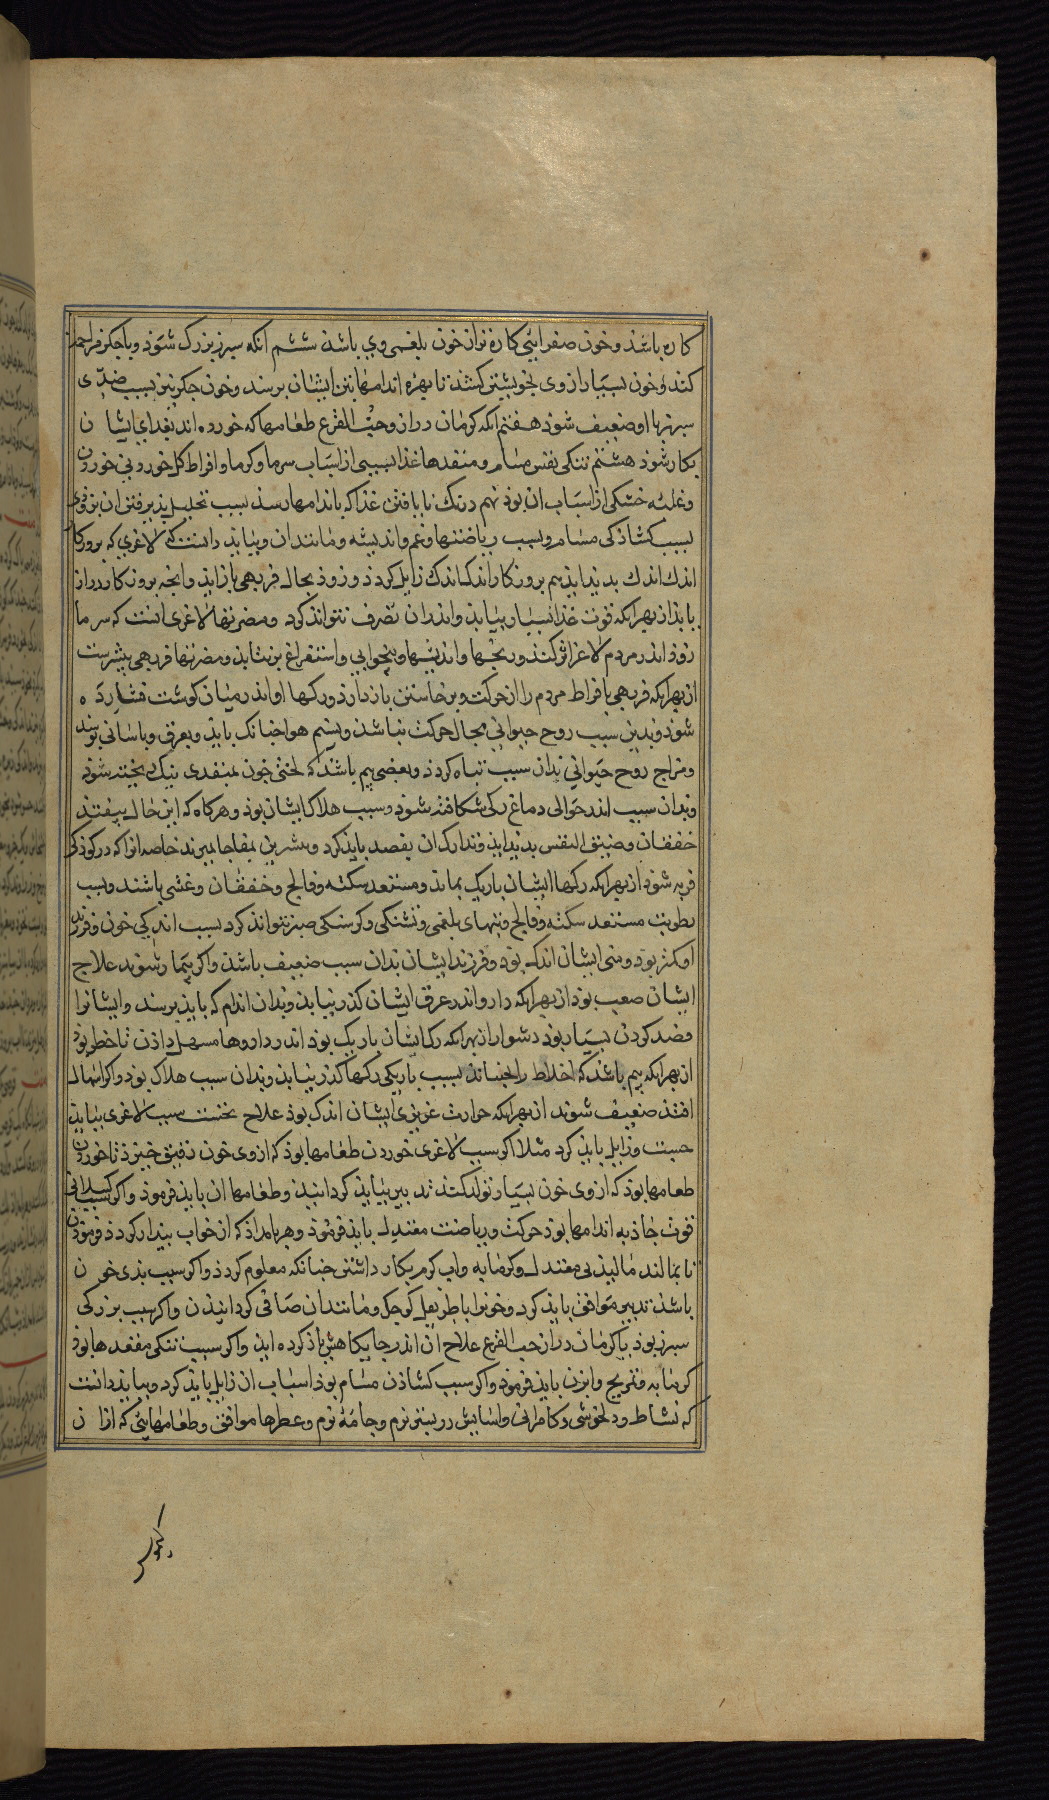 کاره باشد و خون صفرایی کاره تر از خون بلغمی وی باشد ششم انکه سپرز بزرک شود و با جکر فراهم
کند و خون بسیار از وی بخویشتن کشد تا بهره اندامها بتن ایشان برسد و خون جکر نیز بسبب ضدی
سپرز با او ضعیف شود هفتم انکه کرمان دراز و حب القرع طعامها که خورده اند بغدای ایشان
بکار شود هشتم تنکی نفس مسام و منفدها غذا بسببی از اسباب سرما و کرما و افراط کل خورونی خوردن
و غلبه خشکی از اسباب ان بوذ نهم درنک نایافتن غذا که باندامها رسد بسبب تحلیل پذیرفتن ان بزودی
بسبب کشاذکی مسام و بسبب ریاضتها و غم و اندیشه و مانند ان و بباید دانست که لاغری که بروزکار
اندک اندک بدید اید هم بروزکار اندک اندک زایل کردذ و زوذ بحال فربهی باز اید و انچه بروزکار دراز
باید از بهر انکه قوت غذا بسیار بیابد و اندر ان تصرف نتواند کرد و مضرتها لاغری انست که سرما
زوذ اندر مردم لاغر اثر کند و رنجها و اندیشها و بیخوابی و استفراغ برنتابد و مضرتها فربهی بیشرست
از بهر انکه فربهی بافراط مردم را از حرکت و برخاستن باز دارذ و رکها او اندر میان کوشت فشارده
شوذ و بدین سبب روح حیوانی مجال حرکت نیاشد و نسیم هوا چنانک باید و بعرق و باسانی نرسد
و مزاج روح حیوانی بدان سبب تباه کردذ و بعضی بیم باشد که لختی خون بمنفدی تنک ریخته شوذ
و بدان سبب اندر حوالی دماغ رکی شکافته شود و سبب هلاک ایشان بوذ و هرکاه که این حال بیفتد
خفقان و ضیق النفس بدید اید و تدارک ان بفصد باید کرد و بیشرین بمفاجا بمیرند خاصه انرا که در کوذکی
فربه شوذ از بهر انکه رکها ایشان باریک بماند و مستعد سکته و فالج و خفقان و غشی باشند و بسبب
رطوبت مستعد سکته و فالج و تبهای بلغمی و تشنکی و کرسنکی صبر نتواند کرد بسبب اندکی خون و فرزند
او کمتر بوذ و منی ایشان اندک بوذ و فرزند ایشان بدان سبب ضعیف باشد و اکر بیمار شوند علاج
ایشان صعب بوذ از بهر انکه دارو اندر عرق ایشان کذر نیابد و بدان اندام که باید برسد و ایشانرا
فصد کردن بسیار بوذ دشوار از بهر انکه رک ایشان باریک بوذ اندر داروها مسهل داذن تا خطر بوذ
از بهر انکه بیم باشد که اخلاط را بجنباند بسبب باریکی رکها کذر نیابد و بدان سبب هلاک بوذ و اکر اسهال
افتد ضعیف شوند از بهر انکه حرارت غریزی ایشان اندک بوذ علاج نخست سبب لاغری بباید
جست و زایل باید کرد مثلا اکر سبب لاغری خوردن طعامها بوذ که از وی خون رقیق خیزذ تا خوردن
طعامها بوذ که از وی خون بسیار تولد کند تدبیر بباید کردانید و طعامها ان باید فرموذ و اکر سبب کسلانی
قوت جاذبه اندامها بوذ حرکت و ریاضت معتدل باید فرموذ و هر بامداد که از خواب بیدار کردذ فرموذن
تا بمالند مالیدنی معتدل و کرمابه و اب کرم بکار داشتن چنانکه معلوم کردذ و اکر سبب بدی خون
باشد تدبیر موافق باید کرد و خونرا باطریفل کوچک و مانند ان صافی کردانیدن و اکر سبب بزرکی
سپرز بوذ یا کرمان دراز حب القرع علاج ان اندر جایکاهش یاذ کرده اید و اکر سبب تنکی منفدها بوذ
کرمابه و تمریخ و ابزن باید فرموذ و اکر سبب کشاذن مسام بوذ اسباب ان زایل باید کرد و بباید دانست
که نشاط و دلخوشی و کامرانی و اسایش در بستر نرم و جامه نرم و عطرها موافق و طعامهایی که از ان